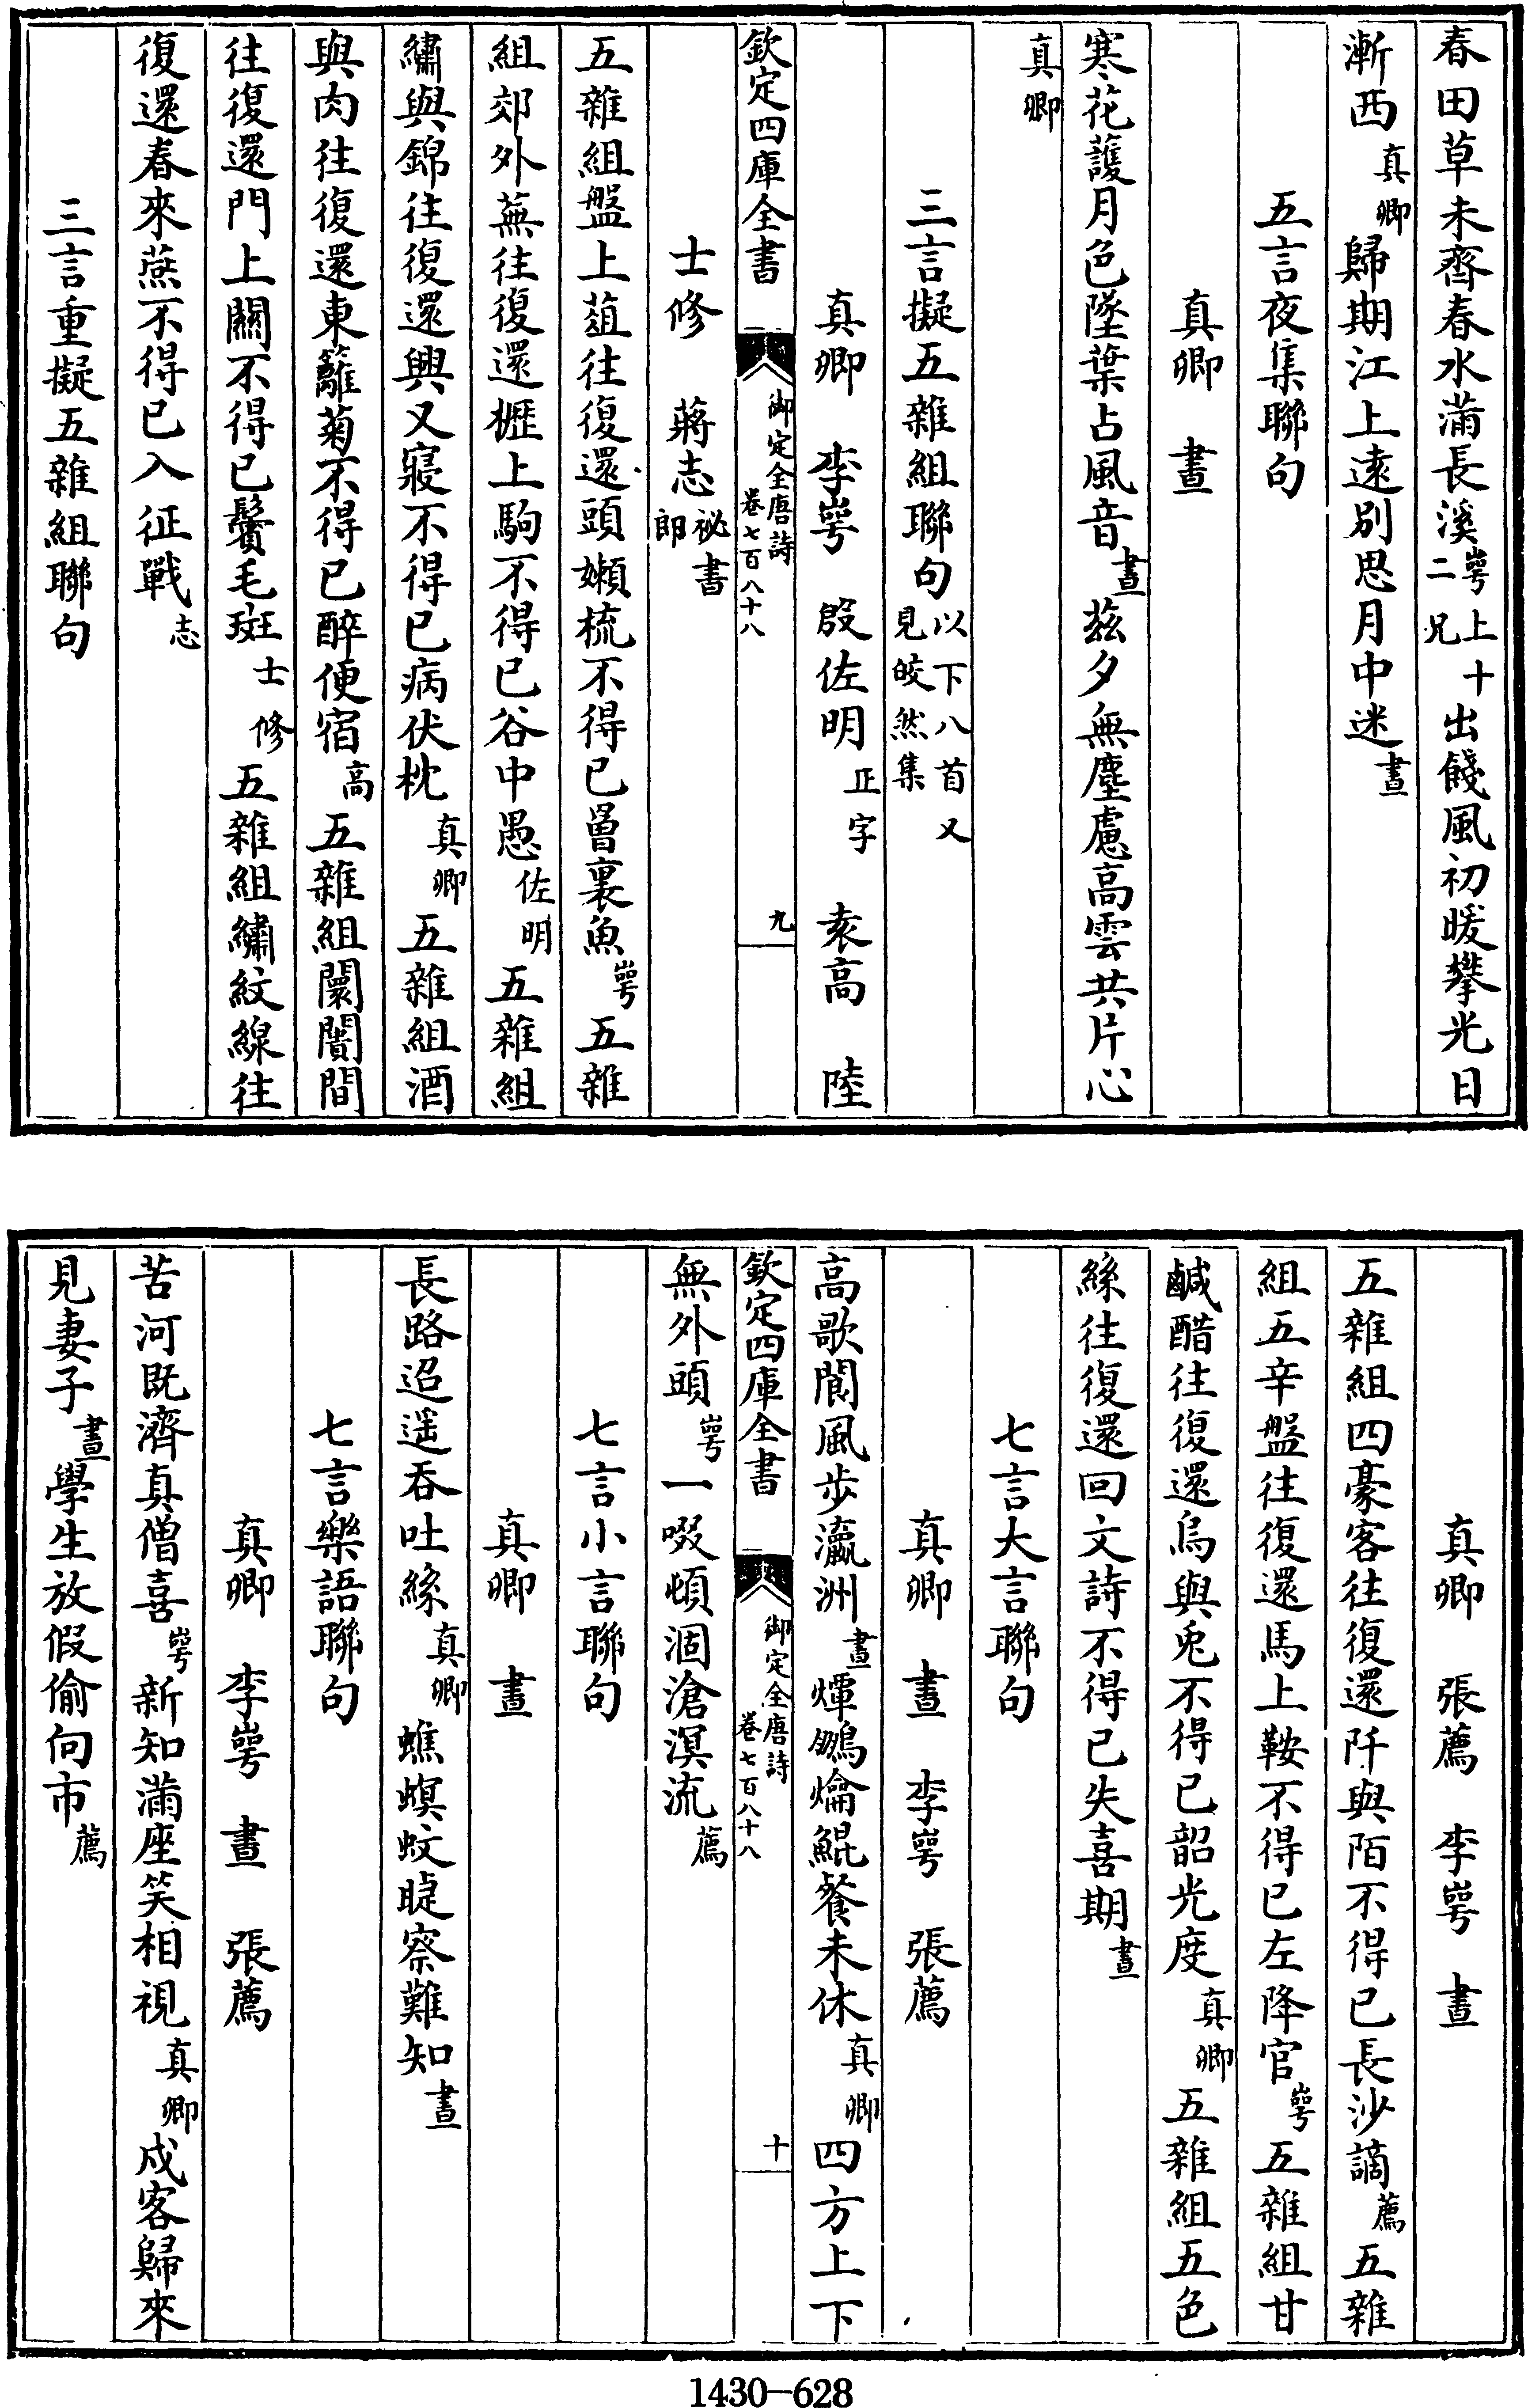 春田草未齊春水滿長溪崿上十二兄出餞風初暖攀光日
漸西真卿歸期江上遠別思月中迷晝
五言夜集聯句
真卿　晝
寒花䕶月色墜葉占風音晝茲夕無塵慮高雲共片心
真卿
三言擬五雜組聯句以下八首又見皎然集
真卿　李崿　殷佐明正字　袁高　陸
欽定四庫全書　御定全唐詩卷七百八十八　九
士修　蔣志祕書郎
五雜組盤上葅往復還頭嬾梳不得已罾裏魚崿五雜
組郊外蕪往復還櫪上駒不得已谷中愚佐明五雜組
繡與錦往復還興又寢不得已病伏枕真卿五雜組酒
與肉往復還東籬菊不得已醉便宿高五雜組闤闠間
往復還門上關不得已鬢毛斑士修五雜組繡紋線往
復還春來燕不得已入征戰志
三言重擬五雜組聯句
真卿　張薦　李崿　晝
五雜組四豪客往復還阡與陌不得已長沙謫薦五雜
組五辛盤往復還馬上鞍不得已左降官崿五雜組甘
鹹醋往復還烏與兎不得已韶光度真卿五雜組五色
絲往復還回文詩不得已失喜期晝
七言大言聯句
真卿　晝　李崿　張薦
高歌閬風步瀛洲晝燀鵬爚鯤餐未休真卿四方上下
欽定四庫全書　御定全唐詩卷七百八十八　十
無外頭崿一啜頓涸滄溟流薦
七言小言聯句
真卿　晝
長路迢遥吞吐絲真卿蟭螟蚊睫察難知晝
七言樂語聯句
真卿　李崿　晝　張薦
苦河既濟真僧喜崿新知滿座笑相視真卿戍客歸來
見妻子晝學生放假偷向市薦
1430—628